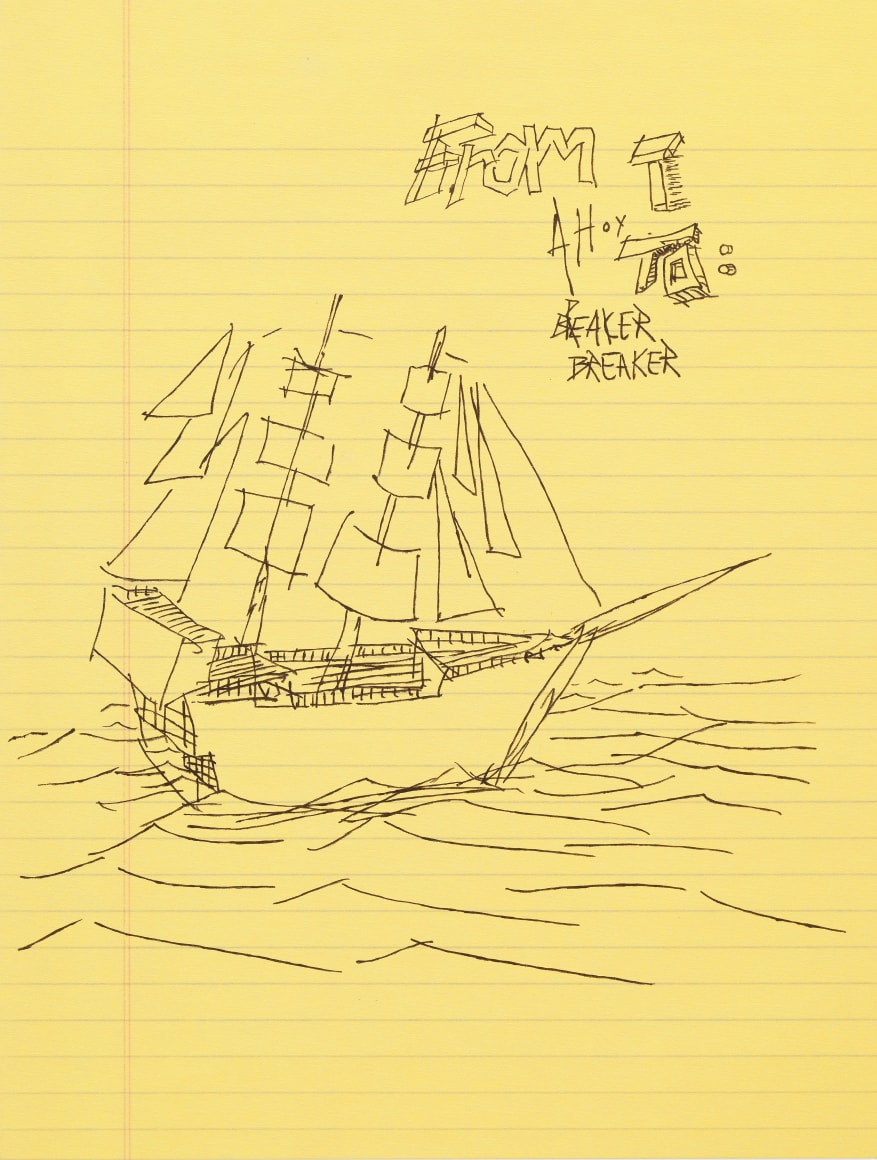 From T
AHOY To BB
BEAKER
BREAKER